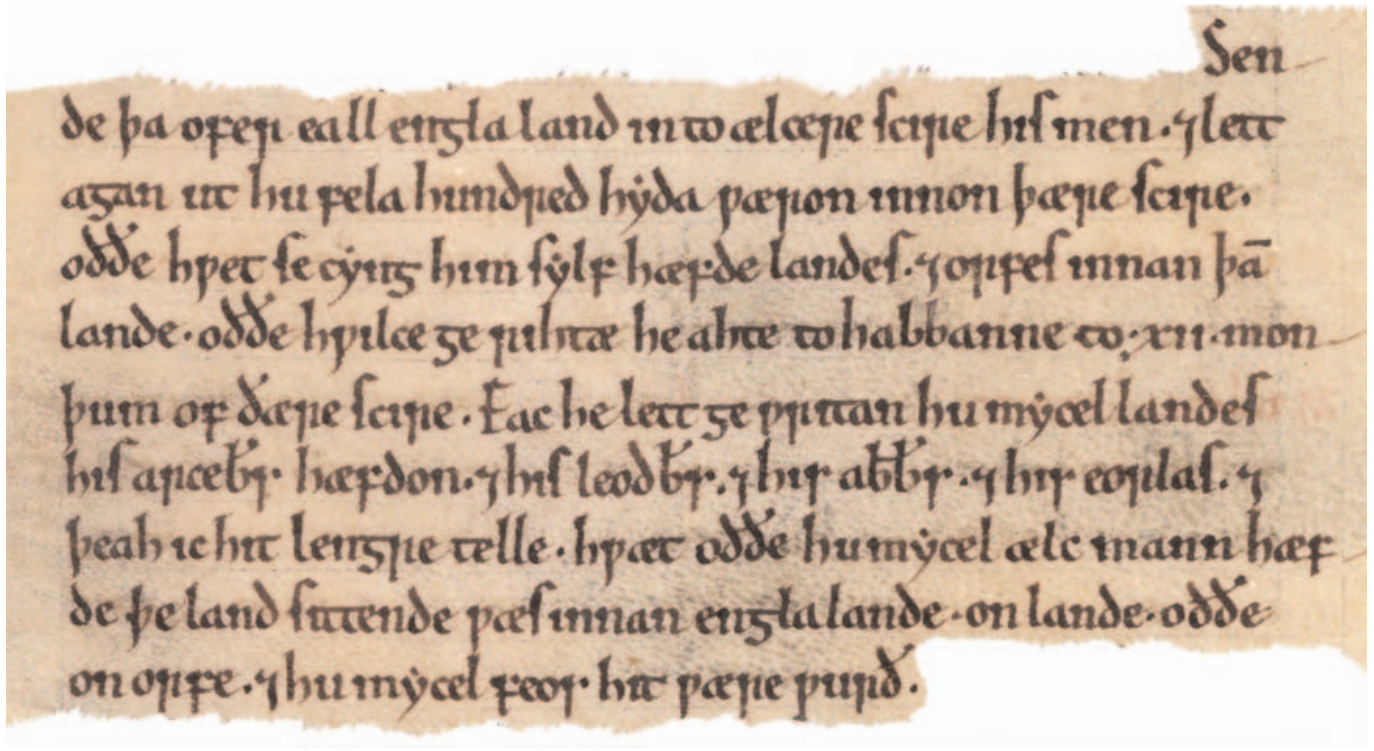 Sen
de þa ofer eall englaland into ælcere scire his men. ⁊ lett
agan ut hu fela hundred hyda ƿæron innon þære scire.
oððe hƿet se cyng him sylf hæfde landes. ⁊ orfes innan þā
lande. oððe hƿilce ge rihtæ he ahte to habbanne to .xii. mon
þum of ðære scire. Eac he lett ge ƿritan hu mycel landes
his arceb̄r hæfdon. ⁊ his leodb̄r. ⁊ his abb̄r. ⁊ his eorlas. ⁊
þeah ic hit lengre telle. hƿæt oððe hu mycel ælc mann hæf
de þe land sittende ƿæs innan englalande. on lande. oððe
on orfe. ⁊ hu mycel feos hit ƿære ƿurð.